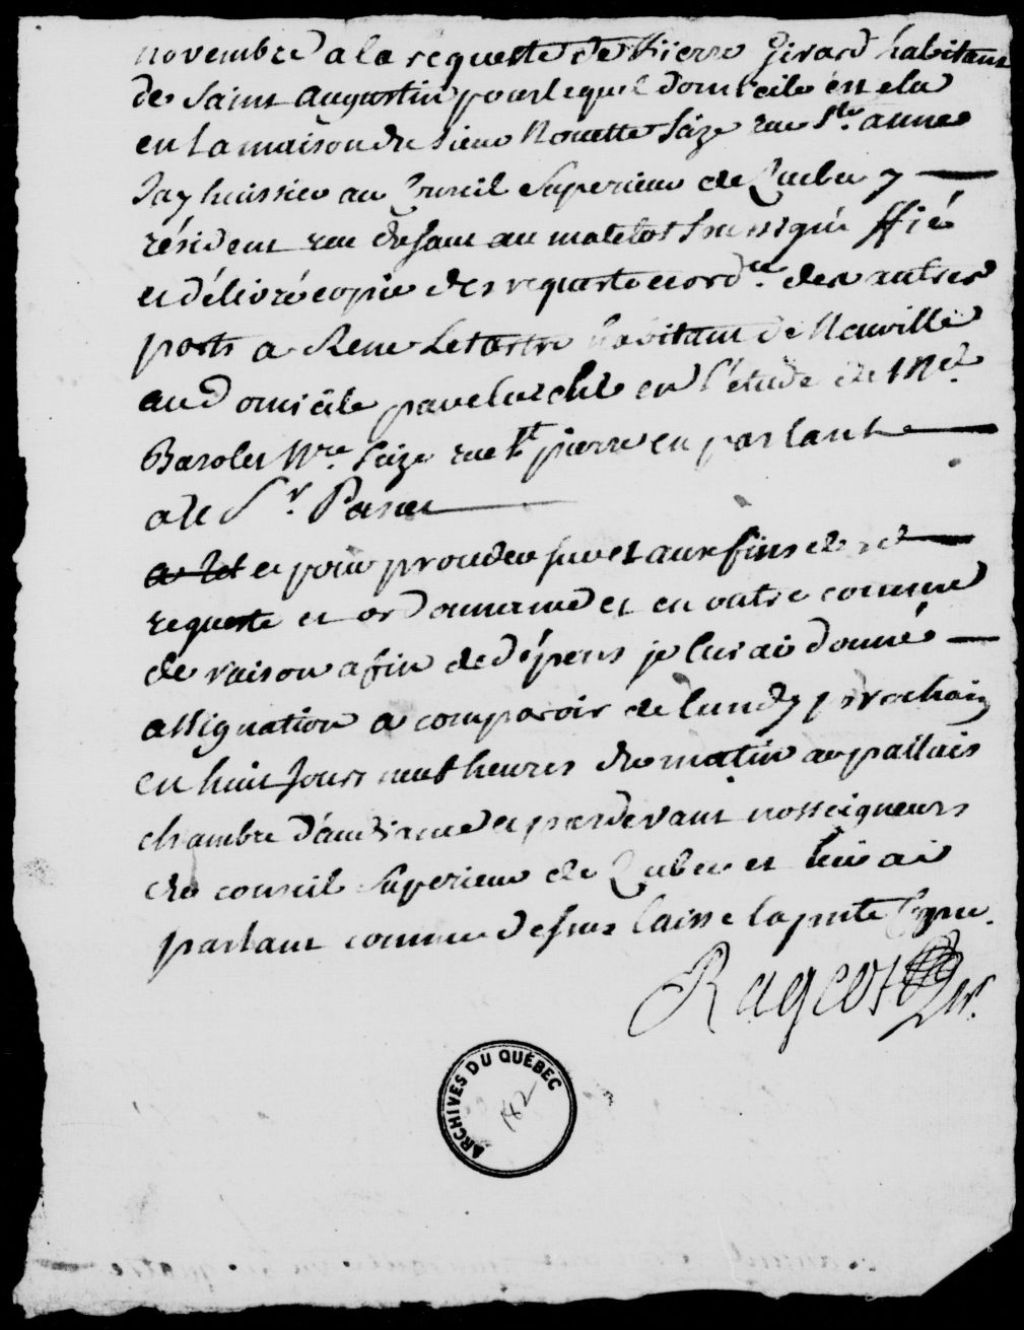 novembre a la requeste de Pierre Girard habitant
de Saint augustin pour lequel domicile est elu
en la maison du sieur Nouette Size rue Ste. anne
Jay huissier au Conseil Superieur de Quebec y
résident rue du saut au matelot Soussigné signifié
et délivré copie des requeste et ordce. des autres
parts a Rene Letartre habitant de Neuville
au domicile par elu en l'étude de Me.
Barolet Nre. Size rue St pierre en parlant
a le Sr. Panet
a Let et pour proceder sur et aux fins des d
requeste et ordonnance et en outre comme
de raison afin de dépens je lui ai donné
assignation a comparoir de lundy prochain
en huit Jours neuf heures du matin au pallais
chambre d'audience et pardevant nosseigneurs
du conseil Superieur de Quebec et lui ai
parlant comme dessus laisse la pnte Copie.
Rageot
ARCHIVES DU QUÉBEC
142